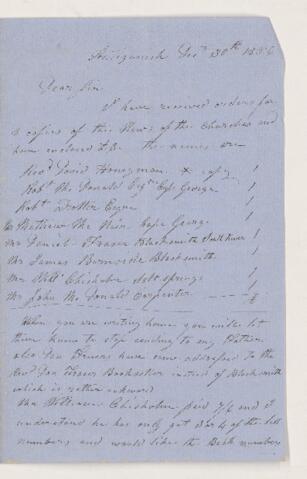 Antigonish Dec 30th 1856
Dear Sir
I have received orders for
8 copies of the News of the Churches and
have inclosed to the names are
Revd David Honeyman copy 1
Robt Mc Donald Esqr Cape George 1
Robt Trotter Esqre 1
Mathew Mc Nair Cape George 1
Mr Daniel Fraser Blacksmith South River 1
Mr James Burnside Blacksmith 1
Mr Willm Chisholm Salt Springs 1
Mr John Mc Donald Carpenter 1
8
When you are writing home you will let
them know to stop sending to my Father
also the have mine addressed to the
Revd Fraser Bookseller instead of Blacksmith
which is rather awkward
Mr William Chisholm paid 7/6 and I
understand he has only got 3 or 4 of the last
numbers and would like the Back numbers